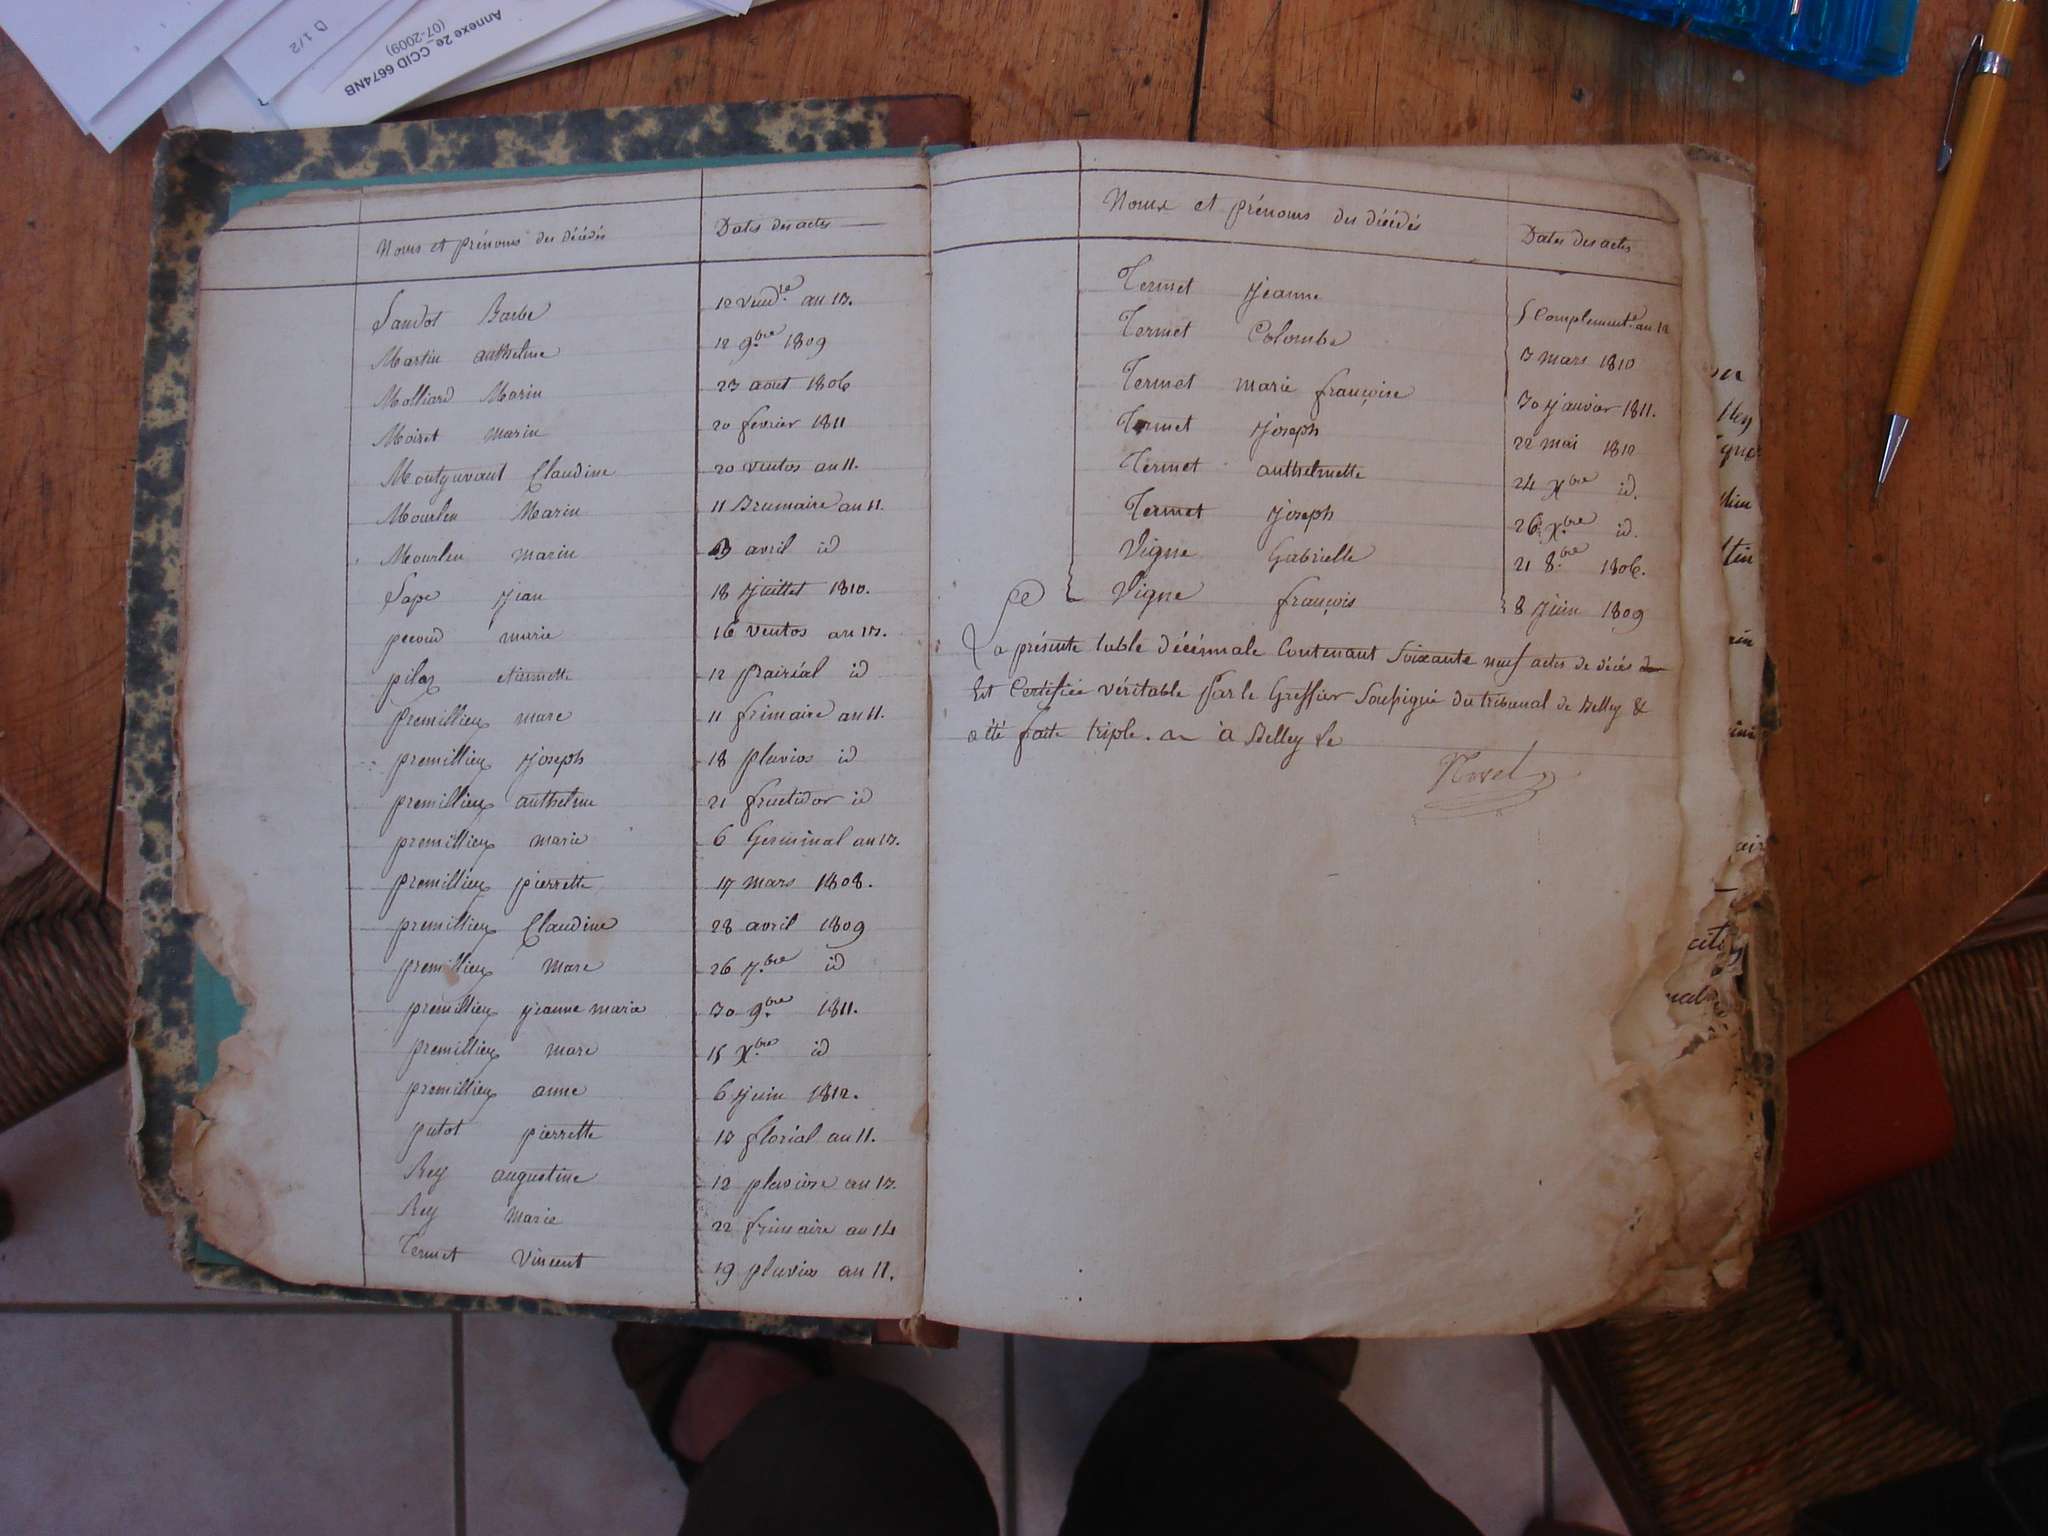 Annexe 2e_CCID 6674NB
(07-2009)
D 1/2
Noms et prénoms des décédés Dates des actes
Barbe 12 vend.re an 13.
Martin anthelme 12 9.bre 1809
Molliard Marin 23 aout 1806
Moiret marin 20 fevrier 1811
Montguvant Claudine 20 ventos an 11.
Mourlen Marin 11 Brumaire an 11.
Mourlen marin 3 avril id
Sape jean 18 juillet 1810.
pecoud marie 16 ventos an 13.
pilaz etiennette 12 prairial id
premillieux marc 11 frimaire an 11.
premillieux joseph 18 pluvios id
premillieux anthelme 21 fructidor id
premillieux marie 6 Germinal an 13.
premillieux pierrette 17 mars 1808.
premillieux Claudine 28 avril 1809
premillieux marc 26 7.bre id
premillieux jeanne marie 30 9.bre 1811.
premillieux marc 15 X.bre id
premillieux anne 6 juin 1812.
putot pierrette 13 floréal an 11.
Rey augustine 12 pluviose an 13.
Rey Marie 22 frimaire an 14
Termet Vincent 19 pluvios an 11.
Noms et prénoms des décédés Dates des actes
Termet jeanne 5 Complement.re an 12
Termet Colombe 3 mars 1810
Termet marie françoise 30 janvier 1811.
Termet joseph 22 mai 1810
Termet anthelmette 24 X.bre id.
Termet joseph 26 X.bre id.
Vigne Gabrielle 21 8.bre 1806.
Vigne françois 8 juin 1809
La présente table décénnale Contenant Soixante neuf actes de décès
Est Certifiée véritable par le Greffier Soussigné du tribunal de Belley &
a été faite triple. à Belley le
Novel